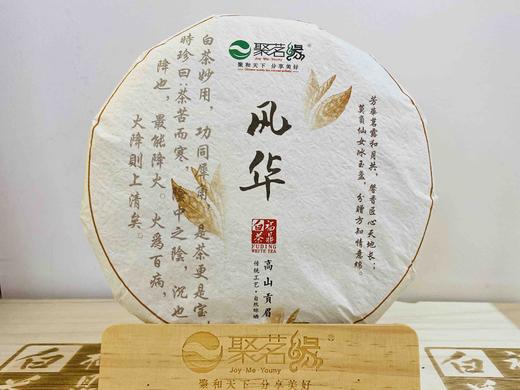 聚茗缘®
Joy·Me·Youmy
聚和天下 分享美好
风华
白茶
福鼎
FUDING
WHITE TEA
高山贡眉
传统工艺·自然晾晒
芳华茗露和月共，馨香匠心天地长；
莫负仙女冰玉盏，分赠方知情意绵。
白茶妙用，功同犀角，是茶更是宝，
时珍曰茶苦而寒，阴中之阴，沉也
降也，最能降火。火为百病，
火降则上清矣。
聚茗缘®
Joy·Me·Youmy
聚和天下 分享美好
白茶
白茶